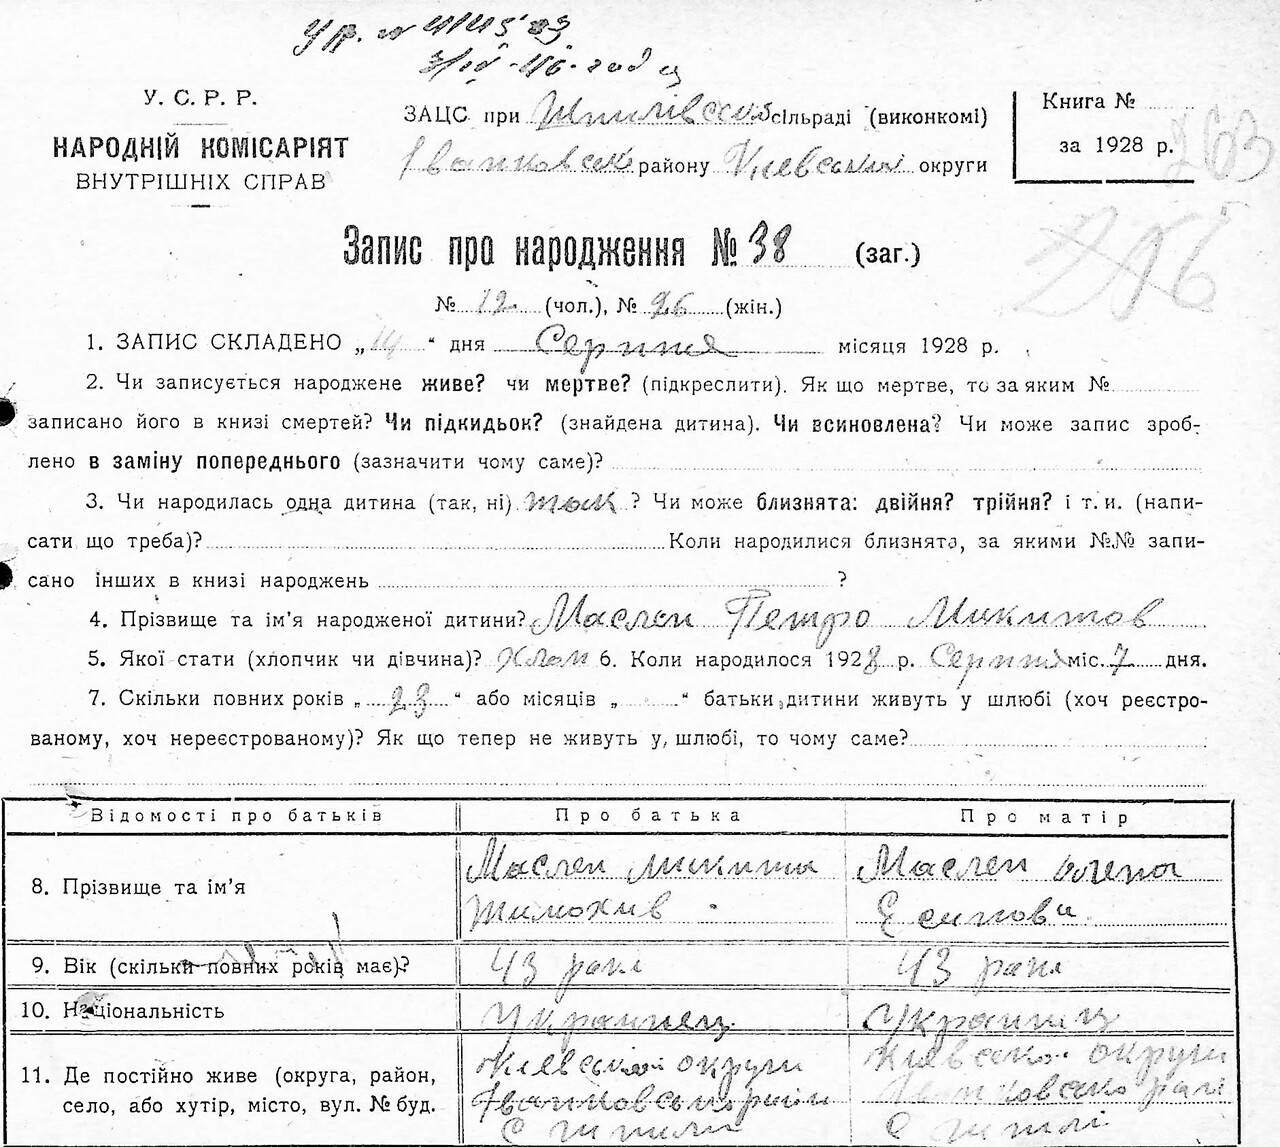 Ур. №
У. С. Р. Р.
НАРОДНІЙ КОМІСАРІЯТ
ВНУТРІШНІХ СПРАВ
ЗАЦС при Шпилівській сільраді (виконкомі)
Іванковськ району Київськой округи
Книга №
за 1928 р.
263
256
Запис про народження № 38 (заг.)
№ 12 (чол.), № 26 (жін.)
1. ЗАПИС СКЛАДЕНО „ 14 “ дня Серпня місяця 1928 р.
2. Чи записується народжене живе? чи мертве? (підкреслити). Як що мертве, то за яким №
записано його в книзі смертей? Чи підкидьок? (знайдена дитина). Чи всиновлена? Чи може запис зроб-
лено в заміну попереднього (зазначити чому саме)?
3. Чи народилась одна дитина (так, ні) так ? Чи може близнята: двійня? трійня? і т. и. (напи-
сати що треба)? Коли народилися близнята, за якими №№ запи-
сано інших в книзі народжень ?
4. Прізвище та ім’я народженої дитини? Маслен Петро Микитов
5. Якої стати (хлопчик чи дівчина)? Хлоп 6. Коли народилося 1928 р. Серпня міс. 7 дня.
7. Скільки повних років „ 23 “ або місяців „ “ батьки дитини живуть у шлюбі (хоч реєстро-
ваному, хоч нереєстрованому)? Як що тепер не живуть у шлюбі, то чому саме?
Відомості про батьків Про батька Про матір
8. Прізвище та ім’я
Маслен Микита
Тимохив
Маслен Олена
Есипова
9. Вік (скільки повних років має)? 43 роки 43 роки
10. Національність Украинец Украинец
11. Де постійно живе (округа, район,
село, або хутір, місто, вул. № буд.
Киевськой округи
Іванковського район
Киевской округи
Іванковсько рай